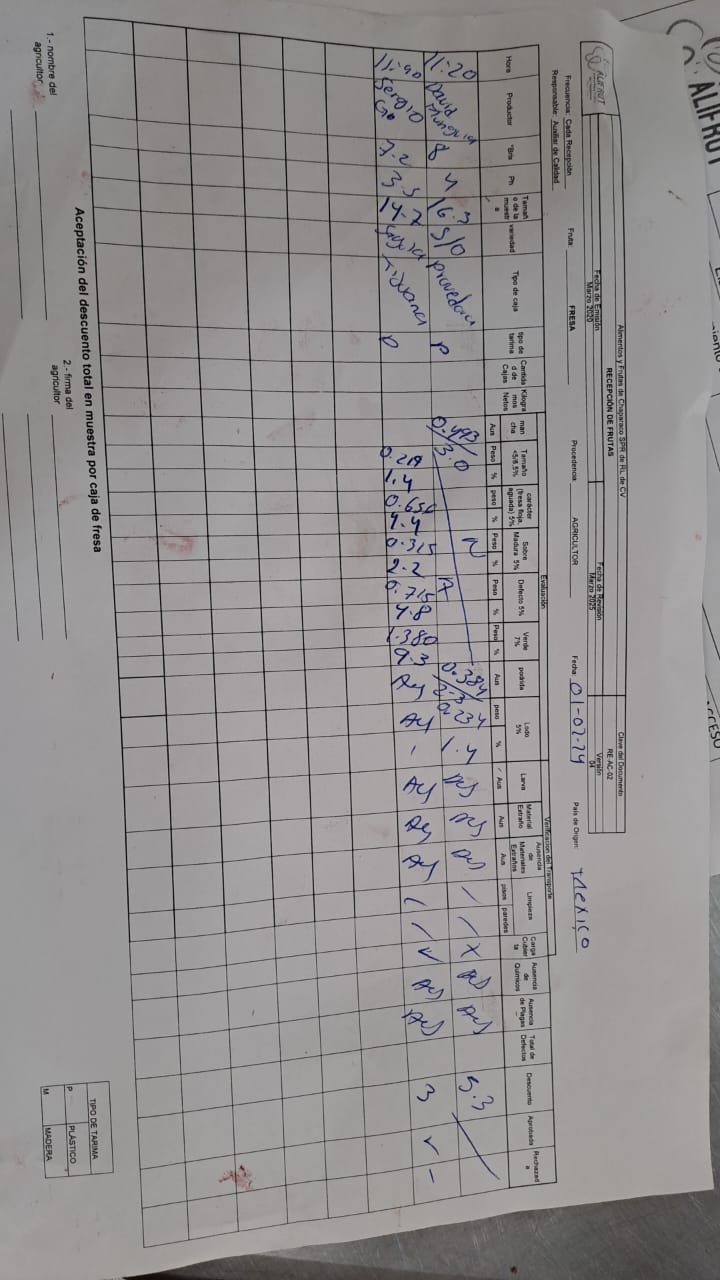 ALIFRUT
miento
ACCESO
ALIFRUT
Alimentos y Frutas de Chaparaco SPR de RL de CV
Clave del Documento
RECEPCIÓN DE FRUTAS
RE-AC-02
Fecha de Emisión
Fecha de Revisión
Versión
Marzo 2020
Marzo 2025
04
Frecuencia: Cada Recepción
Fruta: FRESA
Procedencia: AGRICULTOR
Fecha: 01-02-24
País de Origen: Mexico
Responsable: Auxiliar de Calidad
Evaluación
Verificacion del Transporte
Hora
Productor
°Brix
Ph
Tamaño de la muestra
variedad
Tipo de caja
tipo de tarima
Cantidad de Cajas
Kilogramos Netos
mancha
Aus
Tamaño <5/8.5%
Peso %
carácter (fresa floja, aguada) 5%
peso %
Sobre Madura 5%
Peso %
Defecto 5%
Peso %
Verde 7%
Peso %
podrida
Aus
Lodo 5%
peso %
Larva
Aus
Material Extraño
Aus
Ausencia de Materiales Extraños
Aus
Limpieza
pisos paredes
Carga Cubierta
Ausencia de Químicos
Ausencia de Plagas
Total de Defectos
Descuento
Aprobada
Rechazada
11:20 David 8 4 16.3 S/O P 3.0 0.384 0.234 1.4 5.3
11:40 Sergio 7.2 3.5 14.7 P 1.4 0.315 2.2 0.715 4.8 1.380 9.3 3 ✓ -
Aceptación del descuento total en muestra por caja de fresa
1.- nombre del agricultor
2.- firma del agricultor
TIPO DE TARIMA
P PLÁSTICO
M MADERA